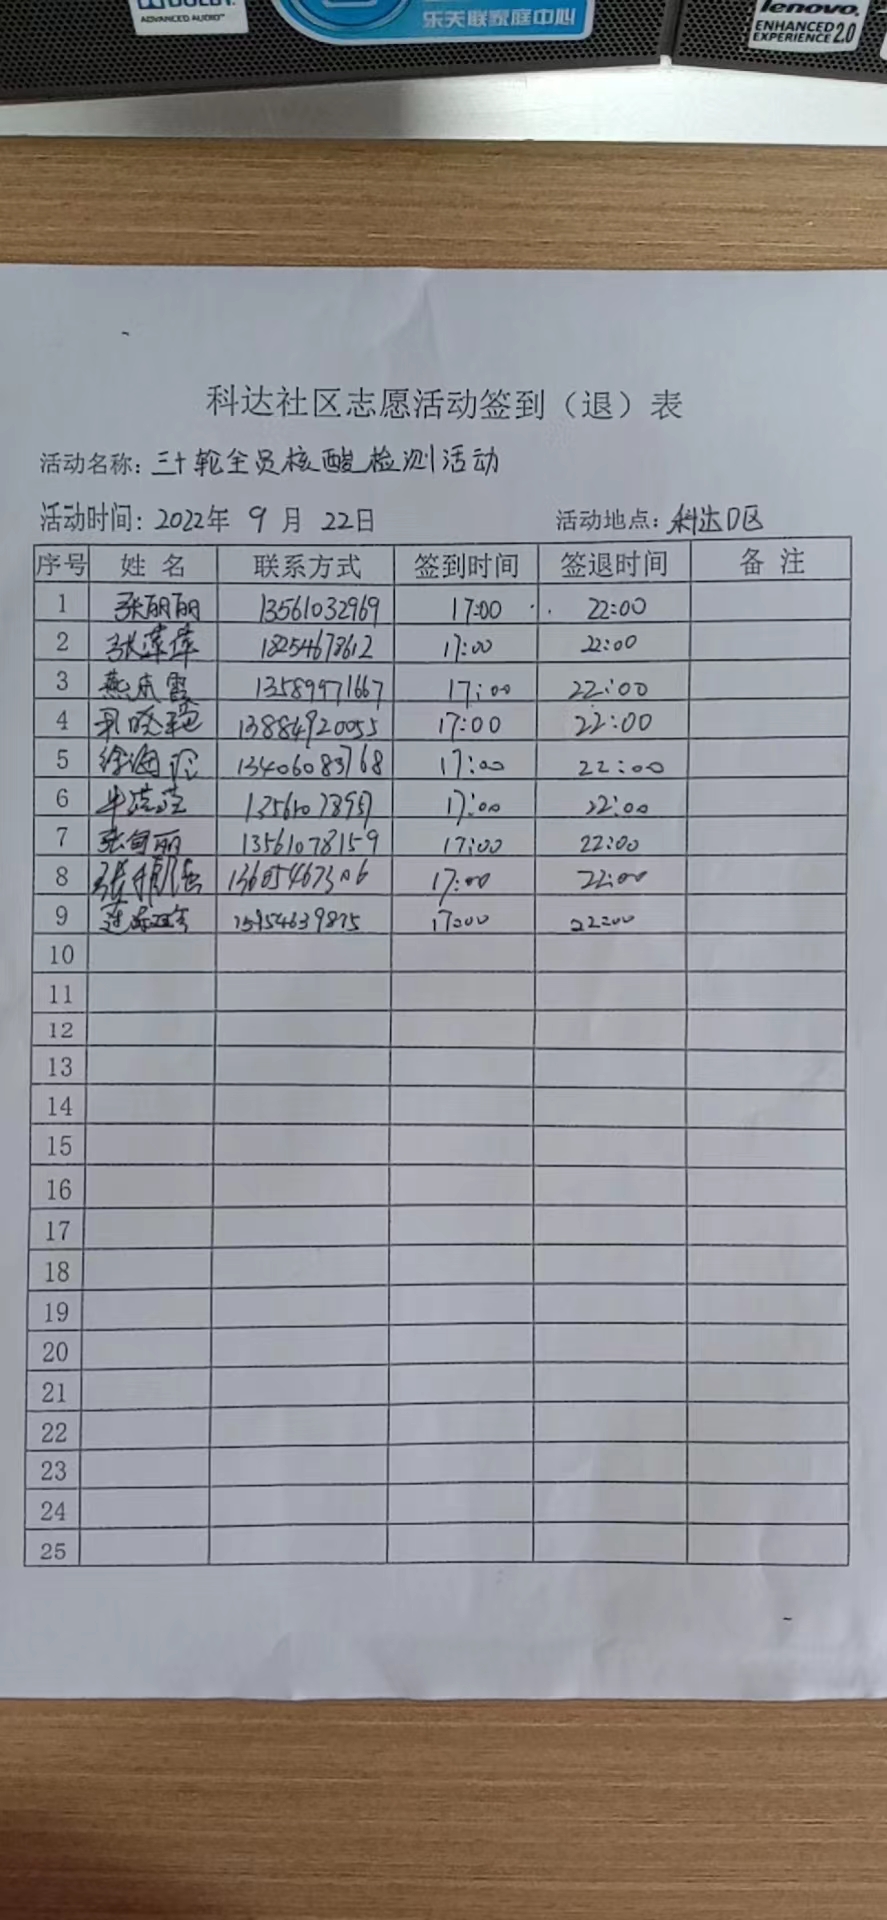 DOLBY.
ADVANCED AUDIO™
lenovo
ENHANCED
EXPERIENCE 2.0
科达社区志愿活动签到（退）表
活动名称: 三十轮全员核酸检测活动
活动时间: 2022年 9 月 22日 活动地点: 科达D区
序号 姓 名 联系方式 签到时间 签退时间 备 注
1 张丽丽 13561032969 17:00 22:00
2 张萍萍 18254678612 17:00 22:00
3 13589971667 17:00 22:00
4 13884920055 17:00 22:00
5 13406083768 17:00 22:00
6 17:00 22:00
7 13561078159 17:00 22:00
8 17:00 22:00
9 17:00 22:00
10
11
12
13
14
15
16
17
18
19
20
21
22
23
24
25